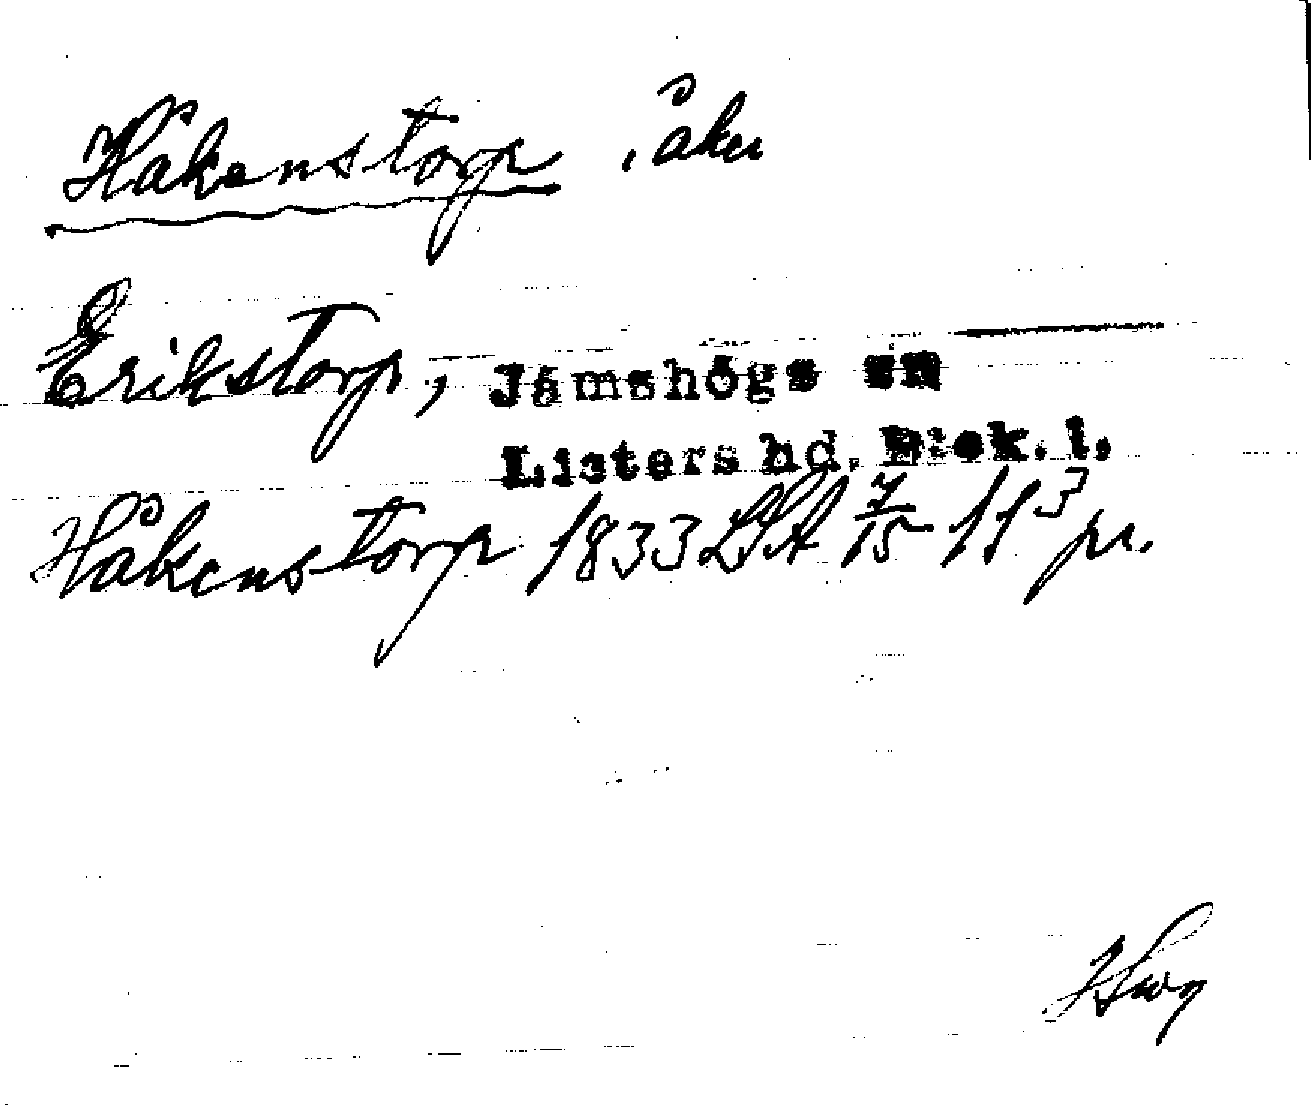 Håkenstorp, åker
Erikstorp, Jämshögs sn
Listers hd. Blek. l.
Håkenstorp 1833 LSA 7/15 11 3 pr.